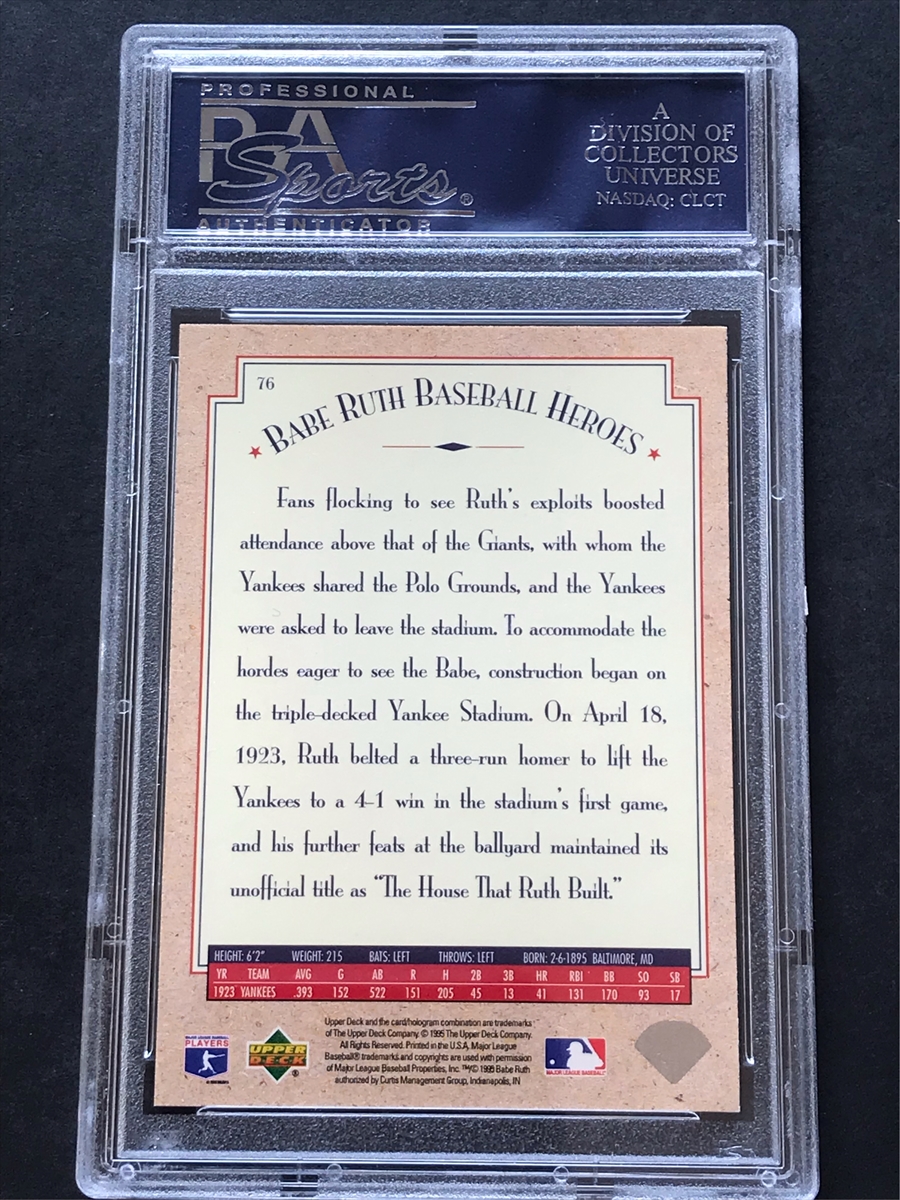 PROFESSIONAL
PSA
Sports®
AUTHENTICATOR
A
DIVISION OF
COLLECTORS
UNIVERSE
NASDAQ: CLCT
76
BABE RUTH BASEBALL HEROES
Fans flocking to see Ruth's exploits boosted
attendance above that of the Giants, with whom the
Yankees shared the Polo Grounds, and the Yankees
were asked to leave the stadium. To accommodate the
hordes eager to see the Babe, construction began on
the triple-decked Yankee Stadium. On April 18,
1923, Ruth belted a three-run homer to lift the
Yankees to a 4-1 win in the stadium's first game,
and his further feats at the ballyard maintained its
unofficial title as "The House That Ruth Built."
HEIGHT: 6'2" WEIGHT: 215 BATS: LEFT THROWS: LEFT BORN: 2-6-1895 BALTIMORE, MD
YR TEAM AVG G AB R H 2B 3B HR RBI BB SO SB
1923 YANKEES .393 152 522 151 205 45 13 41 131 170 93 17
Upper Deck and the card/hologram combination are trademarks
of The Upper Deck Company. © 1995 The Upper Deck Company.
All Rights Reserved. Printed in the U.S.A. Major League
Baseball® trademarks and copyrights are used with permission
of Major League Baseball Properties, Inc. ™/© 1995 Babe Ruth
authorized by Curtis Management Group, Indianapolis, IN
PLAYERS
UPPER
DECK
®
MAJOR LEAGUE BASEBALL